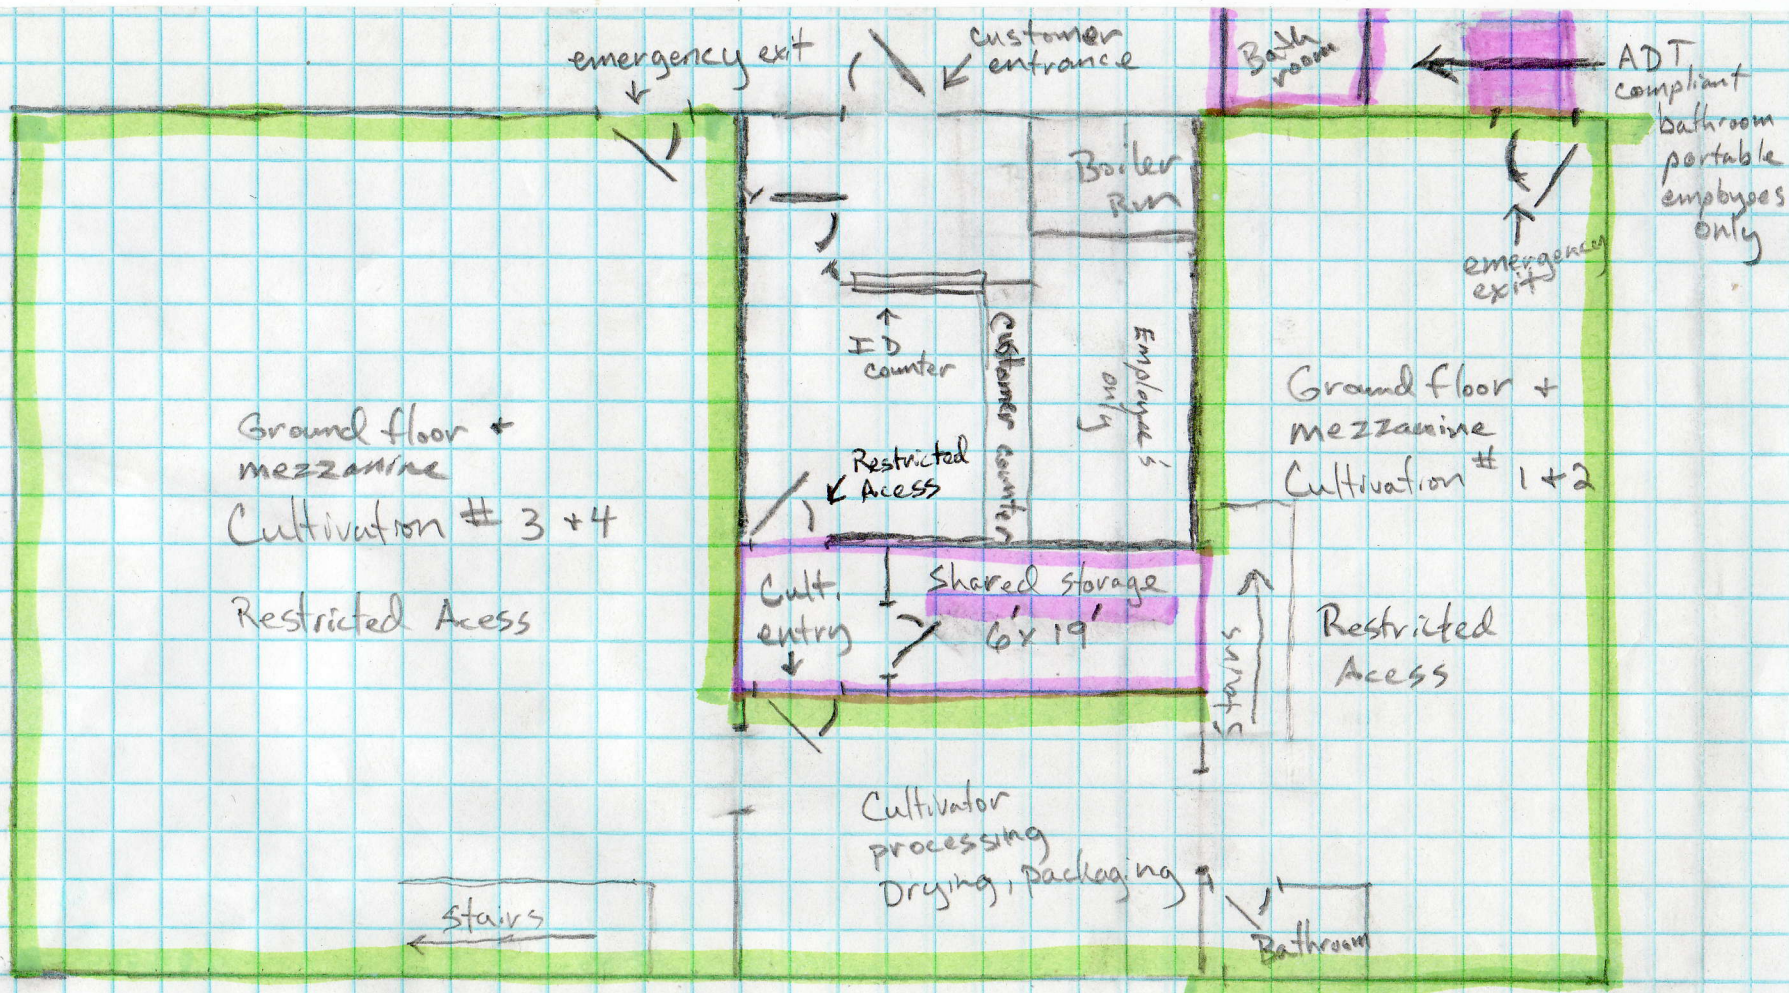 emergency exit
customer
entrance
Bath
room
ADT
compliant
bathroom
portable
employees
only
Boiler
Rm
emergency
exit
ID
counter
Customer counter
Employee's
only
Ground floor +
mezzanine
Cultivation # 3 + 4
Restricted Acess
Restricted
Acess
Ground floor +
mezzanine
Cultivation # 1 + 2
Restricted
Acess
Cult.
entry
Shared storage
6' x 19'
stairs
Cultivator
processing
Drying, packaging
stairs
Bathroom